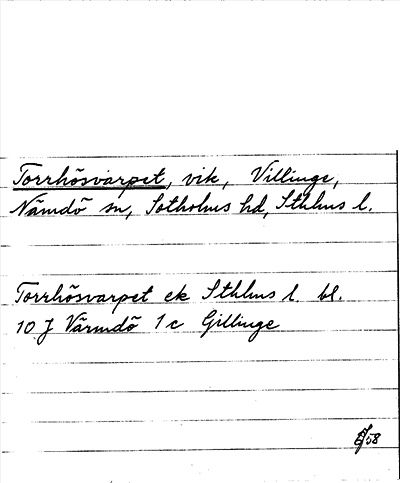 Torrhösvarpet, vik, Villinge,
Nämdö sn, Sotholms hd, Sthlms l.
Torrhösvarpet ek Sthlms l. bl.
10 J Värmdö 1c Gillinge
/58